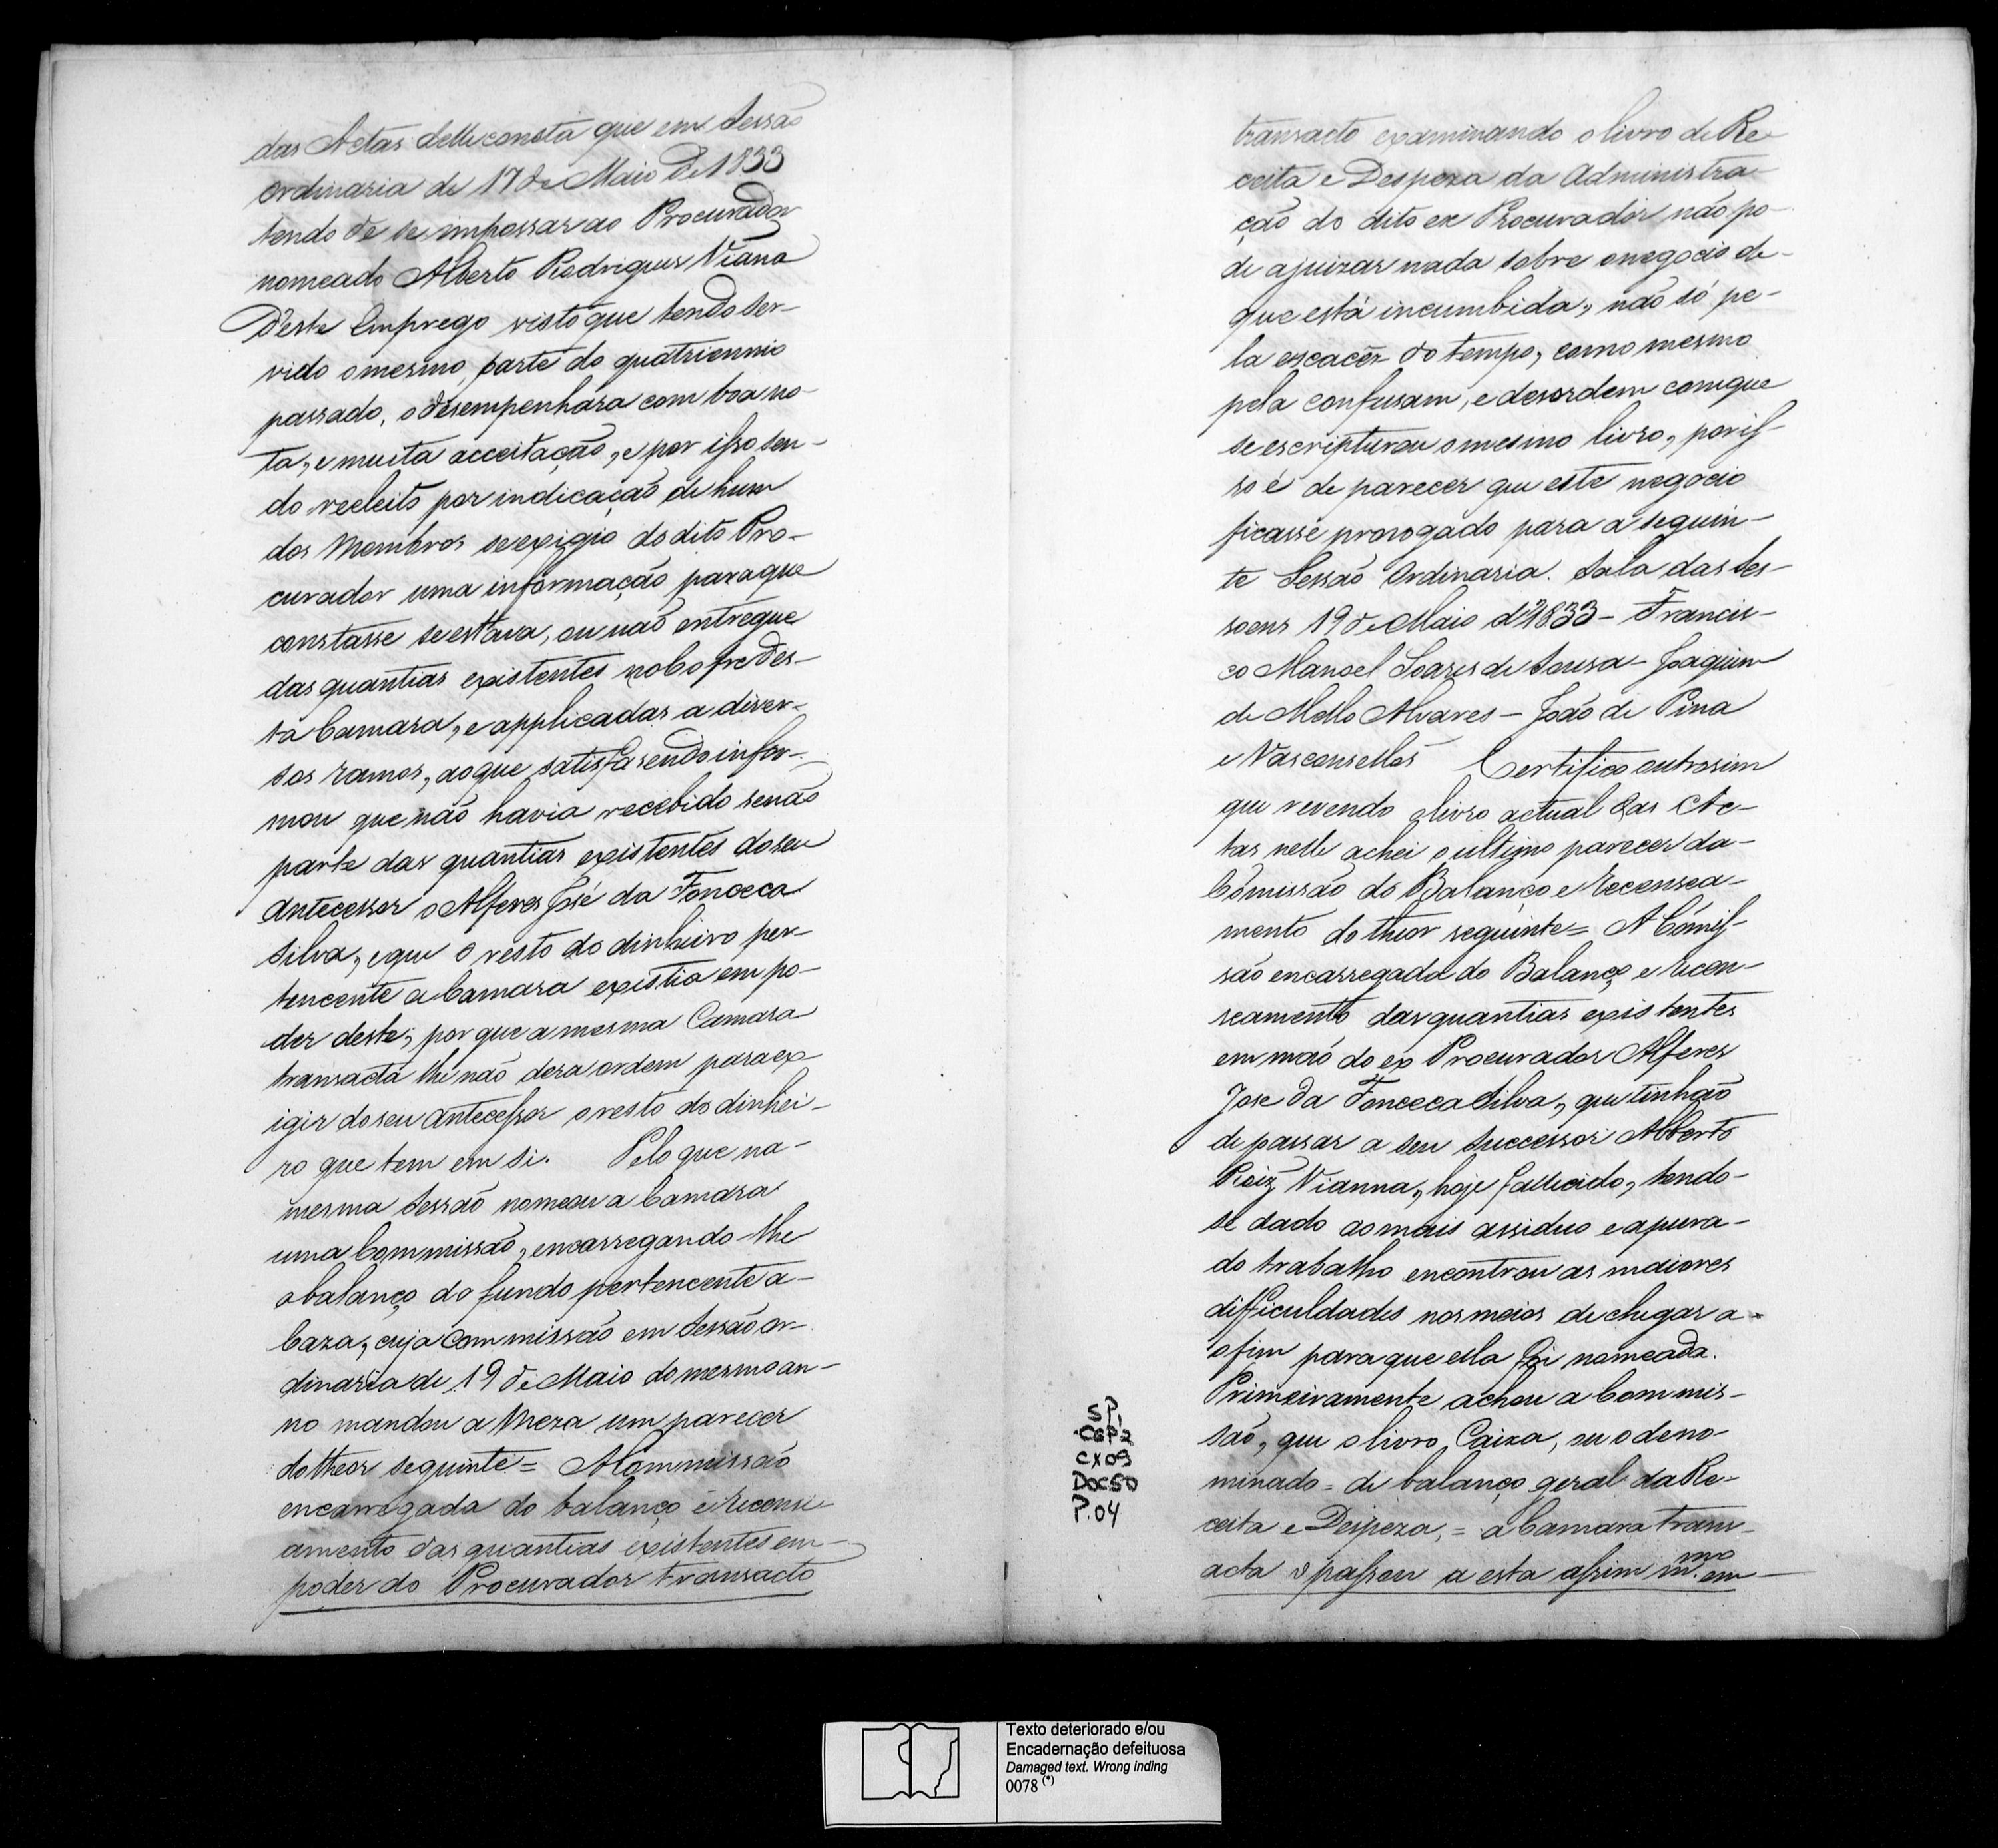 das Actas delle consta que em Sessão
ordinaria de 17 de Maio de 1833
tendo de se impossar ao Procurador
nomeado Alberto Rodrigues Viana
d'este Emprego visto que tendo ser-
vido o mesmo, parte do quatriennio
passado, o desempenhára com boa no-
ta, e muita acceitação, e por isso sen-
do reeleito por indicação de hum
dos Membros se exigio do dito Pro-
curador uma informação para que
constasse se estava, ou não entregue
das quantias existentes no Cofre des-
ta Camara, e applicadas a diver-
sos ramos, ao que satisfasendo infor-
mou que não havia recebido senão
parte das quantias existentes do seu
Antecessor o Alferes José da Fonceca
Silva, e que o resto do dinheiro per-
tencente a Camara existia em po-
der deste, por que a mesma Camara
transacta lhe não dera ordem para ex-
igir do seu Antecessor o resto do dinhei-
ro que tem em si. Pelo que na-
mesma Sessão nomeou a Camara
uma Commissão, encarregando-lhe
o balanço do fundo pertencente a-
Caza, cuja Commissão em Sessão or-
dinaria de 19 de Maio do mesmo an-
no mandou a Meza um parecer
do theor seguinte = A Commissão
encarregada do balanço e recense-
amento das quantias existentes em-
poder do Procurador transacto
transacto examinando o livro de Re-
ceita e Despeza da Administra-
ção do dito ex Procurador não po-
de ajuizar nada sobre o negocio de-
que está incumbida, não só pe-
la escacêz do tempo, como mesmo
pela confusam, e desordem com que
se escripturou o mesmo livro, por is-
so é de parecer que este negocio
ficasse prorogado para a seguin-
te Sessão Ordinaria. Sala das Ses-
soens 19 de Maio d'1833 - Francis-
co Manoel Soares de Sousa - Joaquim
de Mello Alvares - João de Pina
e Vasconsellos Certifico outrosim
que revendo o livro actual das Ac-
tas nelle achei o ultimo parecer da-
Cómissão do Balanço e recensea-
mento do theor seguinte = A Cómis-
são encarregada do Balanço e recen-
seamento das quantias existentes
em mão do ex Procurador Alferes
Jose da Fonceca Silva, que tinhão
de passar a seu successor Alberto
Roiz Vianna, hoje fallecido, tendo-
se dado ao mais assiduo e apura-
do trabalho encontrou as maiores
difficuldades nos meios de chegar a-
o fim para que ella foi nomeada.
Primeiramente achou a Commis-
são, que o livro Caixa, ou o deno-
minado = de balanço geral da Re-
ceita e Despeza, = a Camara trans-
acta o passou a esta assim m.mo em
SP,
Cap2
CX09
DOC50
P.04
Texto deteriorado e/ou
Encadernação defeituosa
Damaged text. Wrong inding
0078 (*)